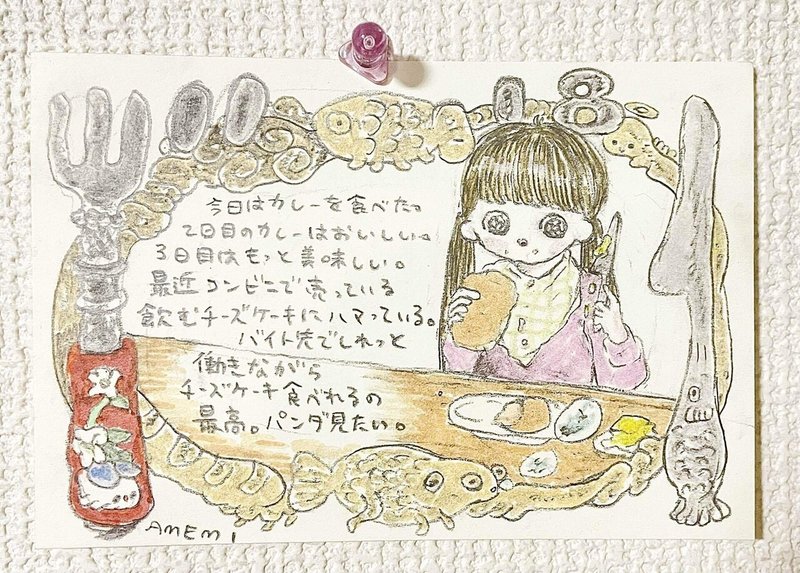 今日はカレーを食べた。
2日目のカレーはおいしい。
3日目はもっと美味しい。
最近コンビニで売っている
飲むチーズケーキにハマっている。
バイト先でしれっと
働きながら
チーズケーキ食べれるの
最高。パンダ見たい。
AMEMI